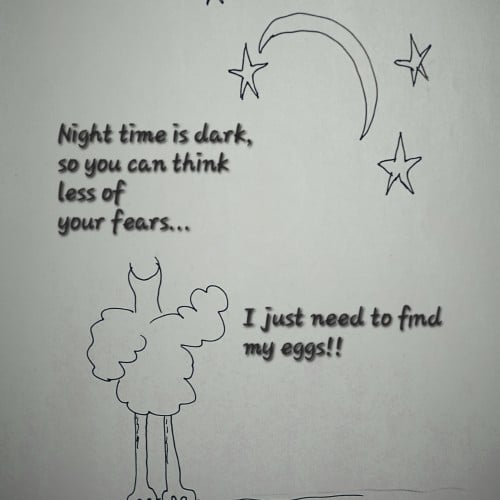 Night time is dark,
so you can think
less of
your fears...
I just need to find
my eggs!!